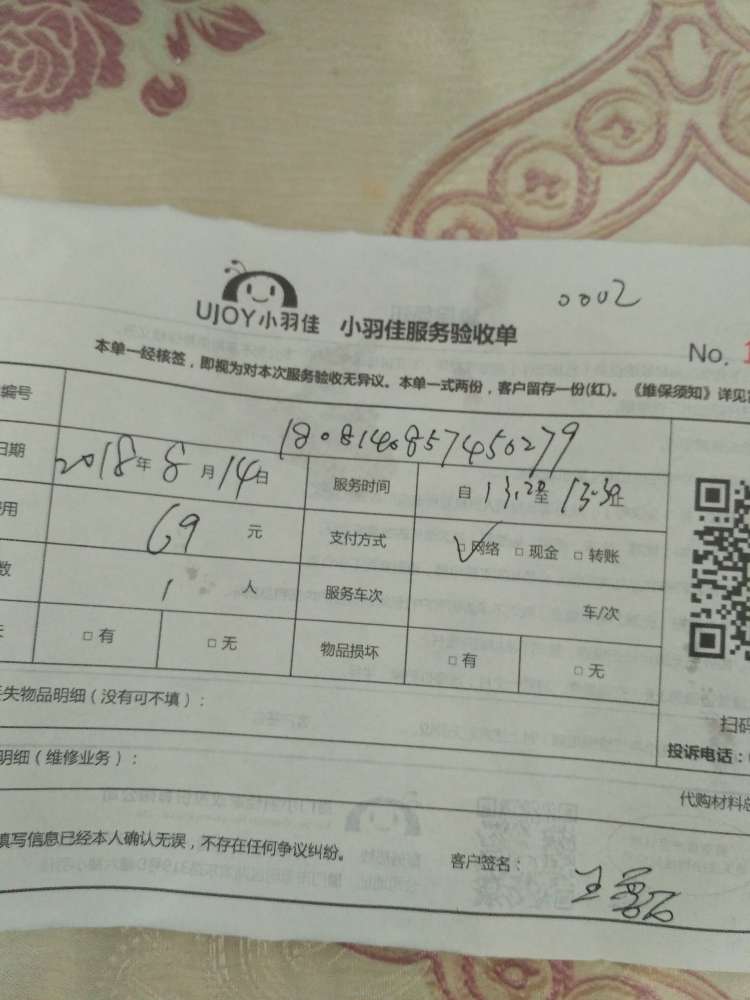 0002
UJOY小羽佳 小羽佳服务验收单
No. 1
本单一经核签，即视为对本次服务验收无异议。本单一式两份，客户留存一份(红)。《维保须知》详见
编号 1808140857450279
日期 2018年8月14日 服务时间 自13.20至13.30止
用 69元 支付方式 ☑网络 □现金 □转账
数 1人 服务车次 车/次
□有 □无 物品损坏 □有 □无
失物品明细（没有可不填）：
扫码
明细（维修业务）：
投诉电话：
代购材料总
填写信息已经本人确认无误，不存在任何争议纠纷。 客户签名：